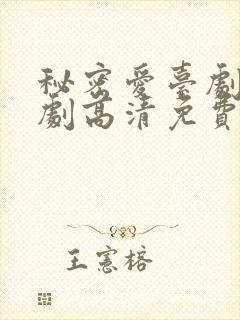 秘密愛臺劇
劇高清免費
王憲榕